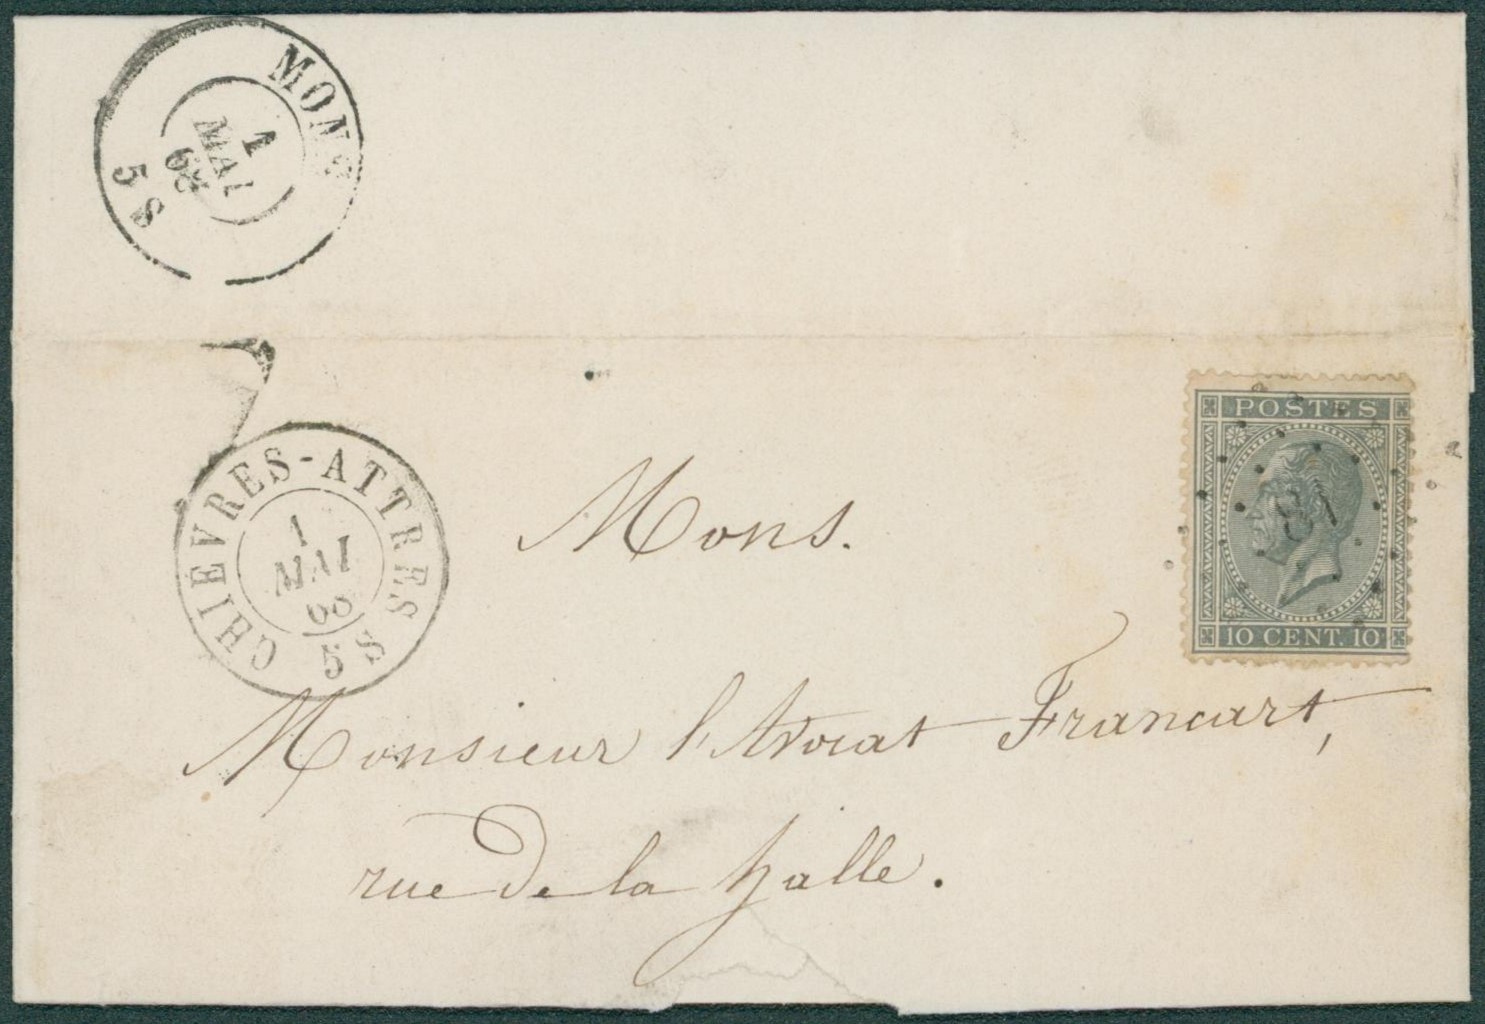 MONS
1
MAI
68
5 S
CHIÈVRES-ATTRES
1
MAI
68
5 S
POSTES
10 CENT. 10
Mons.
Monsieur l'Avocat Francart,
rue de la halle.